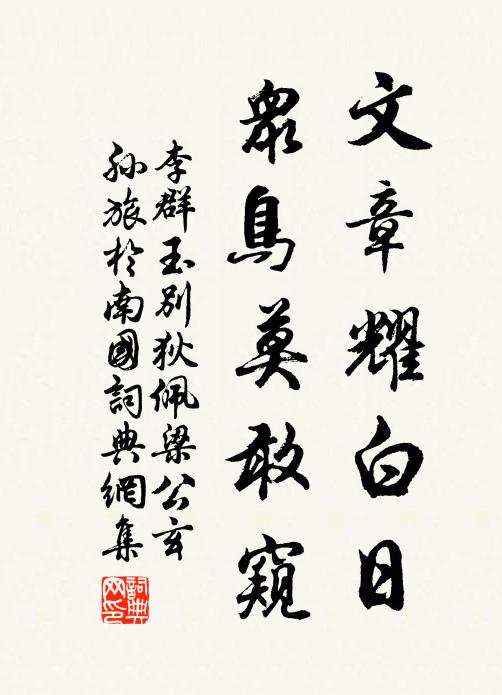 文章耀白日
眾鳥莫敢窺
李群玉別狄佩梁公玄
孫旅於南國詞典網集
詞典網印